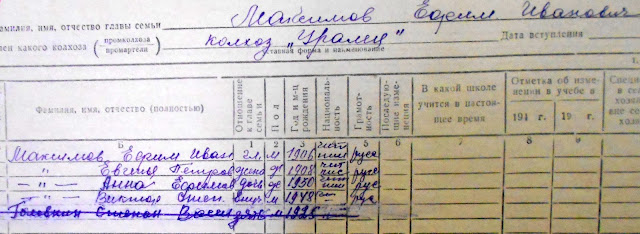 фамилия, имя, отчество главы семьи Максимов Ефрим Иванович
лен какого колхоза (промколхоза промартели) колхоз „Уралец" Дата вступления
ставная форма и наименование
Фамилия, имя, отчество (полностью) Отношение к главе семьи Пол Год и м-ц рождения Националь- ность Грамот- ность Последую- щие изме- нения В какой школе учится в настоя- щее время Отметка об изме- нении в учебе в 194 г. 19 г. Специ
Б 1 2 3 4 5 6 7 8 9
Максимов Ефрим Иван гл. м 1906 руса
-"- Петров жена ж 1908 руск
-"- Анна Ефримов дочь 1930 рус
-"- Виктор Степ. внук м 1948 рус
Головкин Степан Васил зять м 1925